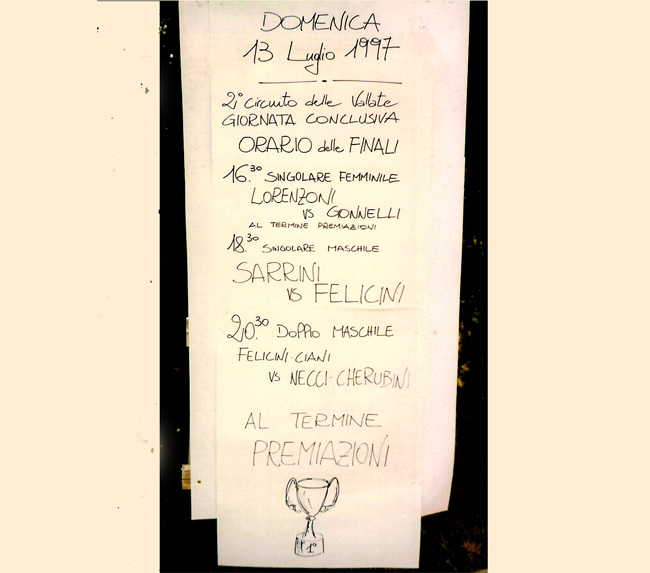 DOMENICA
13 Luglio 1997
2° Circuito delle Vallate
GIORNATA CONCLUSIVA
ORARIO delle FINALI
16.30 SINGOLARE FEMMINILE
LORENZONI
vs GONNELLI
AL TERMINE PREMIAZIONI
18.30 SINGOLARE MASCHILE
SARRINI
vs FELICINI
20.30 DOPPIO MASCHILE
FELICINI-CIANI
vs NECCI-CHERUBINI
AL TERMINE
PREMIAZIONI
1°